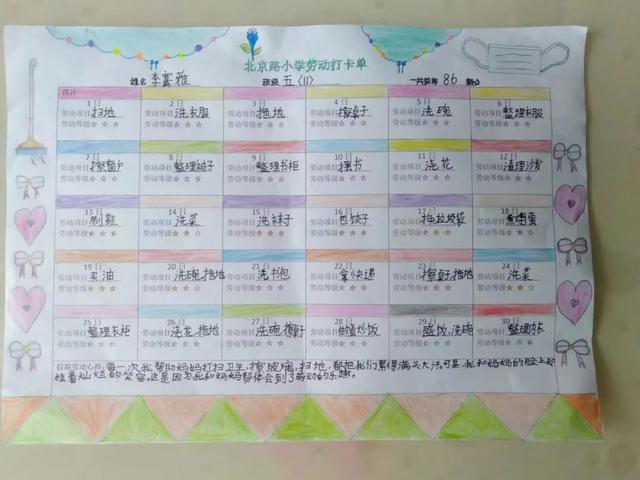 北京路小学劳动打卡单
姓名 李富雅 班级 五（11） 一共获得 86 颗☆
项目
1日 2日 3日 4日 5日 6日
劳动项目 扫地 劳动项目 洗衣服 劳动项目 拖地 劳动项目 擦桌子 劳动项目 洗碗 劳动项目 整理衣服
劳动等级☆ ☆ ☆ 劳动等级☆ ☆ ☆ 劳动等级☆ ☆ ☆ 劳动等级☆ ☆ ☆ 劳动等级☆ ☆ ☆ 劳动等级☆ ☆ ☆
7日 8日 9日 10日 11日 12日
劳动项目 擦窗户 劳动项目 整理被子 劳动项目 整理书柜 劳动项目 摆书 劳动项目 浇花 劳动项目 清理沙发
劳动等级☆ ☆ ☆ 劳动等级☆ ☆ ☆ 劳动等级☆ ☆ ☆ 劳动等级☆ ☆ ☆ 劳动等级☆ ☆ ☆ 劳动等级☆ ☆ ☆
13日 14日 15日 16日 17日 18日
劳动项目 刷鞋 劳动项目 洗菜 劳动项目 洗袜子 劳动项目 包饺子 劳动项目 换垃圾袋 劳动项目 煮鸡蛋
劳动等级☆ ☆ ☆ 劳动等级☆ ☆ ☆ 劳动等级☆ ☆ ☆ 劳动等级☆ ☆ ☆ 劳动等级☆ ☆ ☆ 劳动等级☆ ☆ ☆
19日 20日 21日 22日 23日 24日
劳动项目 买油 劳动项目 洗碗,拖地 劳动项目 洗书包 劳动项目 拿快递 劳动项目 擦桌子,拖地 劳动项目 洗菜
劳动等级☆ ☆ ☆ 劳动等级☆ ☆ ☆ 劳动等级☆ ☆ ☆ 劳动等级☆ ☆ ☆ 劳动等级☆ ☆ ☆ 劳动等级☆ ☆ ☆
25日 26日 27日 28日 29日 30日
劳动项目 整理衣柜 劳动项目 浇花,拖地 劳动项目 洗碗,擦桌子 劳动项目 做蛋炒饭 劳动项目 盛饭,洗碗 劳动项目 整理
劳动等级☆ ☆ ☆ 劳动等级☆ ☆ ☆ 劳动等级☆ ☆ ☆ 劳动等级☆ ☆ ☆ 劳动等级☆ ☆ ☆ 劳动等级☆ ☆ ☆
假期劳动心得:有一次,我帮助妈妈打扫卫生,擦玻璃,扫地,我们累得满头大汗,可是,我和妈妈的脸上却
挂着灿烂的笑容,这是因为我和妈妈都体会到了劳动的乐趣。